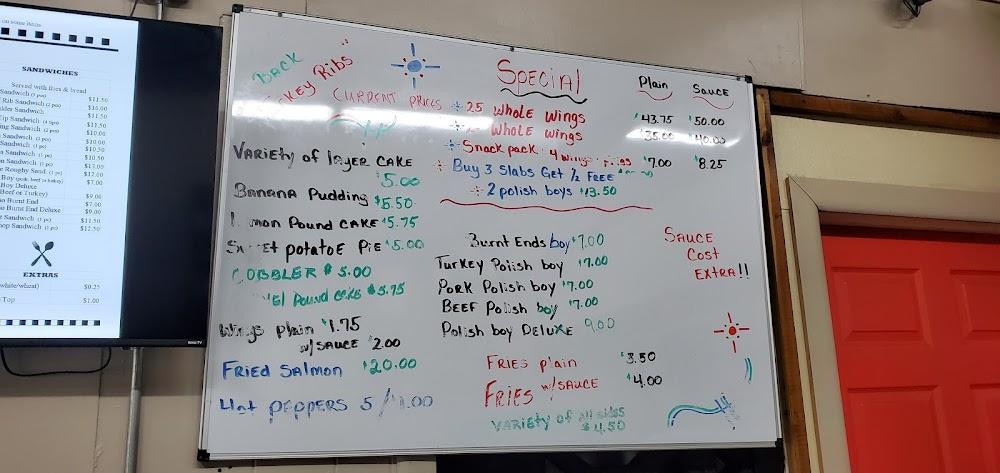 on some items
SANDWICHES
Served with fries & bread
Sandwich (3 pcs) $11.50
Rib Sandwich (2 pcs) $16.00
Sandwich $11.50
Tip Sandwich $11.50
Sandwich $10.00
Sandwich
Sandwich $10.50
Sandwich
Sandwich
Roughy Sand. $12.00
Boy $7.00
Boy Deluxe
Beef or Turkey) $9.00
Burnt End $7.00
Burnt End Deluxe $9.00
Sandwich $11.50
Sandwich $12.50
EXTRAS
white/wheat) $0.25
Top $1.00
Roku TV
BACK
RIBS
CURRENT PRICES
VARIETY of layer CAKE
$5.00
BANANA Pudding $5.50
mon Pound CAKE $5.75
potatoE PiE $5.00
COBBLER $5.00
Pound CAKE $5.75
Wings Plain $1.75
w/SAUCE $2.00
FRIED SAlmon $20.00
Hot PEPPERS 5/$1.00
SPECIAL Plain SAUCE
25 WHOLE WINGS $43.75 $50.00
WHOLE WINGS $35.00 $40.00
SNACK PACK 4 WINGS FRIES $7.00 $8.25
Buy 3 Slabs Get 1/2 FEEE
2 polish boys $13.50
Burnt Ends boy $7.00
TurKEY Polish boy $7.00
PORK Polish boy $7.00
BEEF Polish boy $7.00
Polish boy DELUXE 9.00
SAUCE
Cost
EXTRA!!
FRIES plain $3.50
FRIES w/SAUCE $4.00
VARIETY of all sides
$4.50